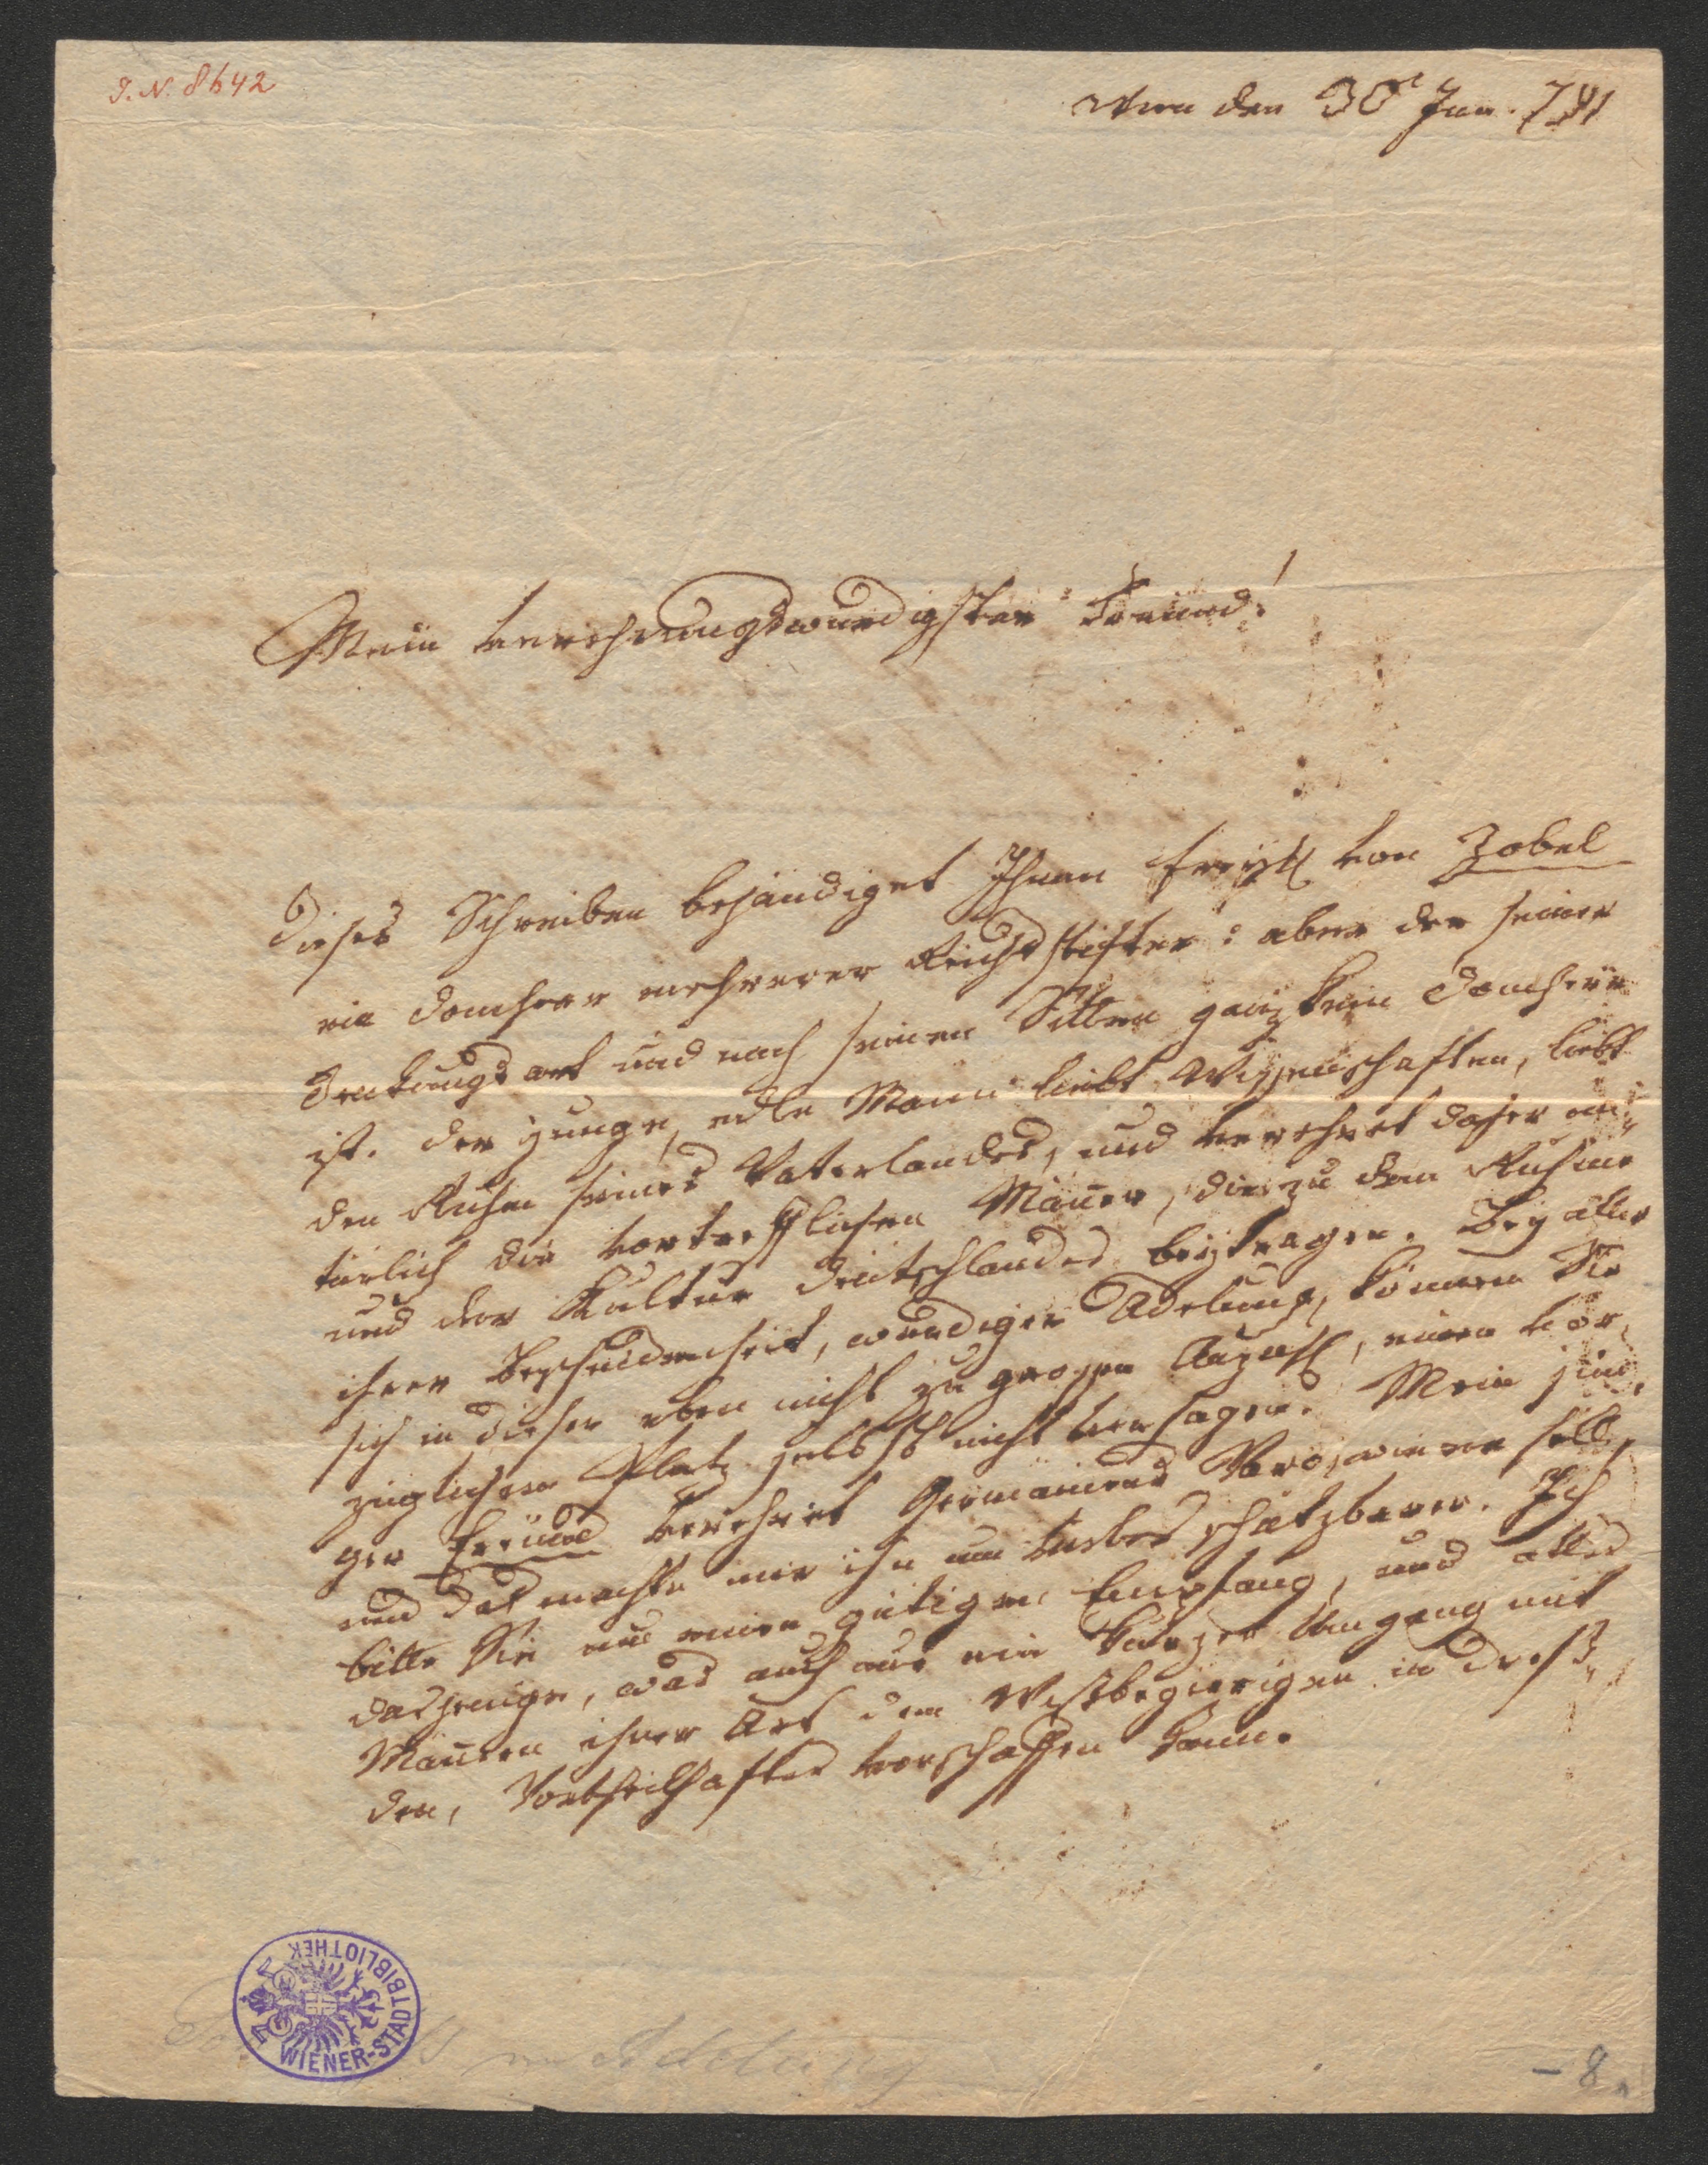 I. N. 8642
Wien den 30t Jun. 791
Mein verehrungswürdigster Freund!
Dieses Schreiben behändiget Ihnen Freyh von Zobel
ein Domherr mehrerer Reichsstifter: aber der seiner
Denkungsart und nach seinen Sitten ganz kein Domherr
ist. Der junge, edle Mann liebt Wissenschaften, liebt
den Ruhm seines Vaterlandes, und verehret daher na¬
türlich die vortrefflichen Mäner, die zu dem Ruhme
und der Kultur Deutschlandes beytragen. Bey aller
ihrer Bescheidenheit, würdiger Adelung, können Sie
sich in dieser eben nicht zu grossen Anzahl, einen vor¬
züglichen Platz selbst nicht versagen. Mein jun¬
ger Freund verehret Germaniens selbst,
und das machte mir ihn um schätzbarer. Ich
bitte Sie um einen gütigen Empfang, und alles
dasjenige, was auch nur ein kurzer Umgang mit
Mänern ihrer Art dem Wißbegierigen in Dreß¬
den, Vortheilhaftes verschaffen kann.
WIENER-STADTBIBLIOTHEK
an Adelung
- 8.